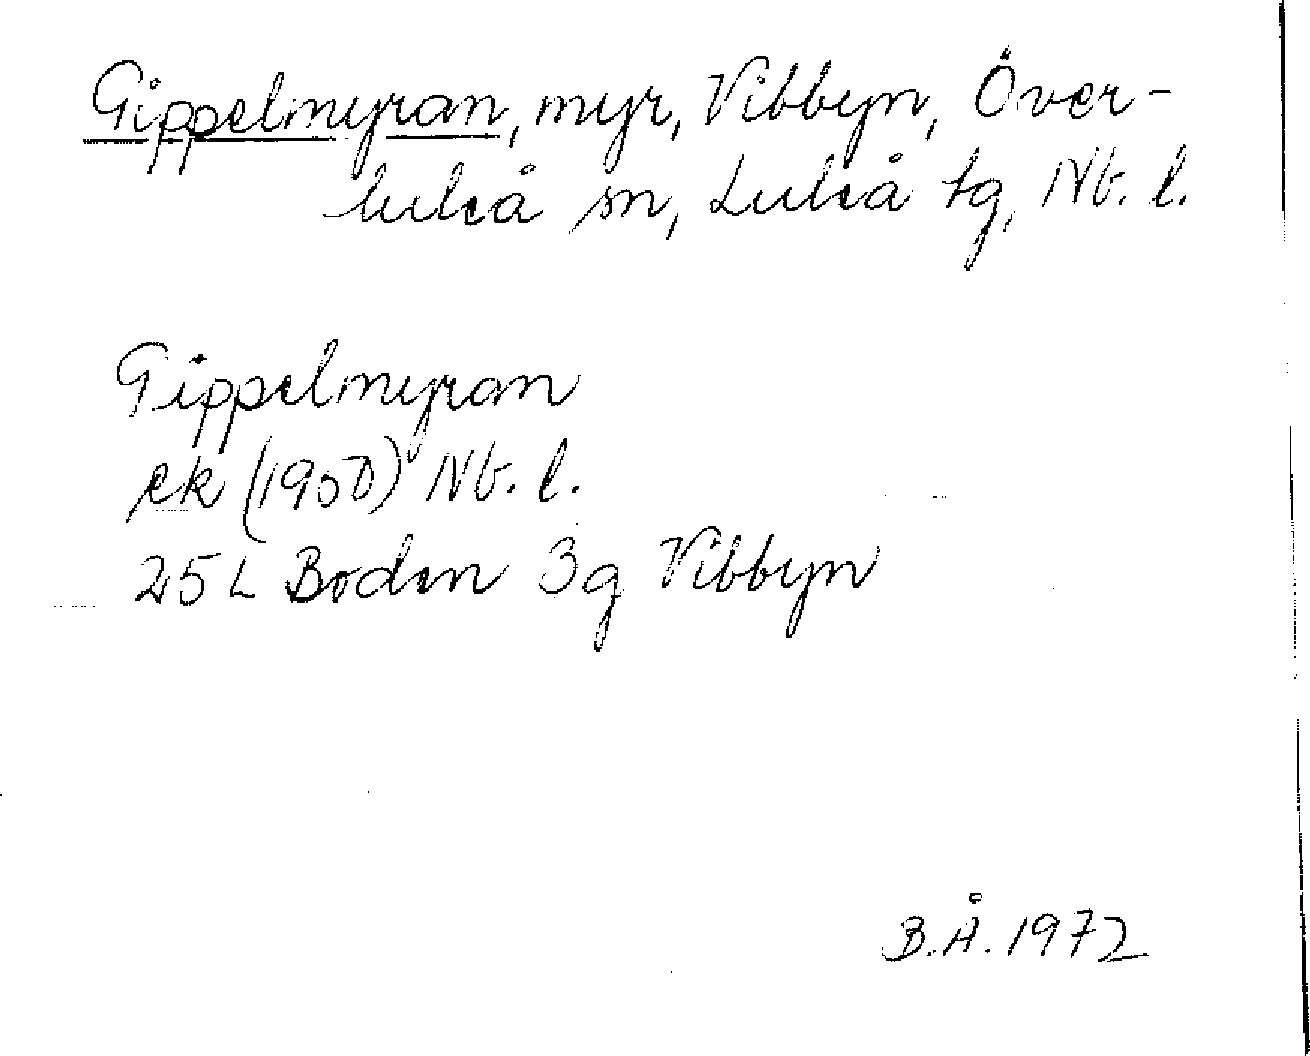 Gippelmyran, myr, Vibbyn, Över-
luleå sn, Luleå tg, Nb. l.
Gippelmyran
ek (1950) Nb. l.
25 L Boden 3g Vibbyn
B.Å. 1972